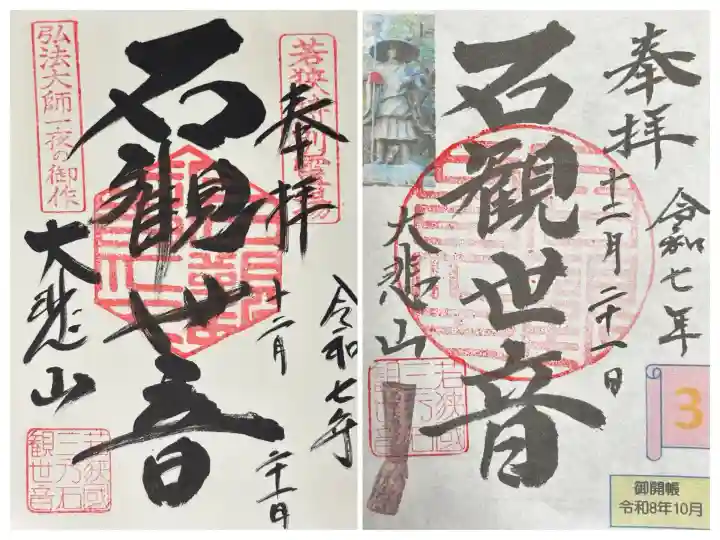 奉拝
若狭
石観世音
弘法大師一夜の御作
大悲山
令和七年
十二月
二十一日
若狭國
三方石
観世音
奉拝
令和七年
十二月二十一日
石観世音
大悲山
若狭國
三方石
観世音
3
御開帳
令和8年10月